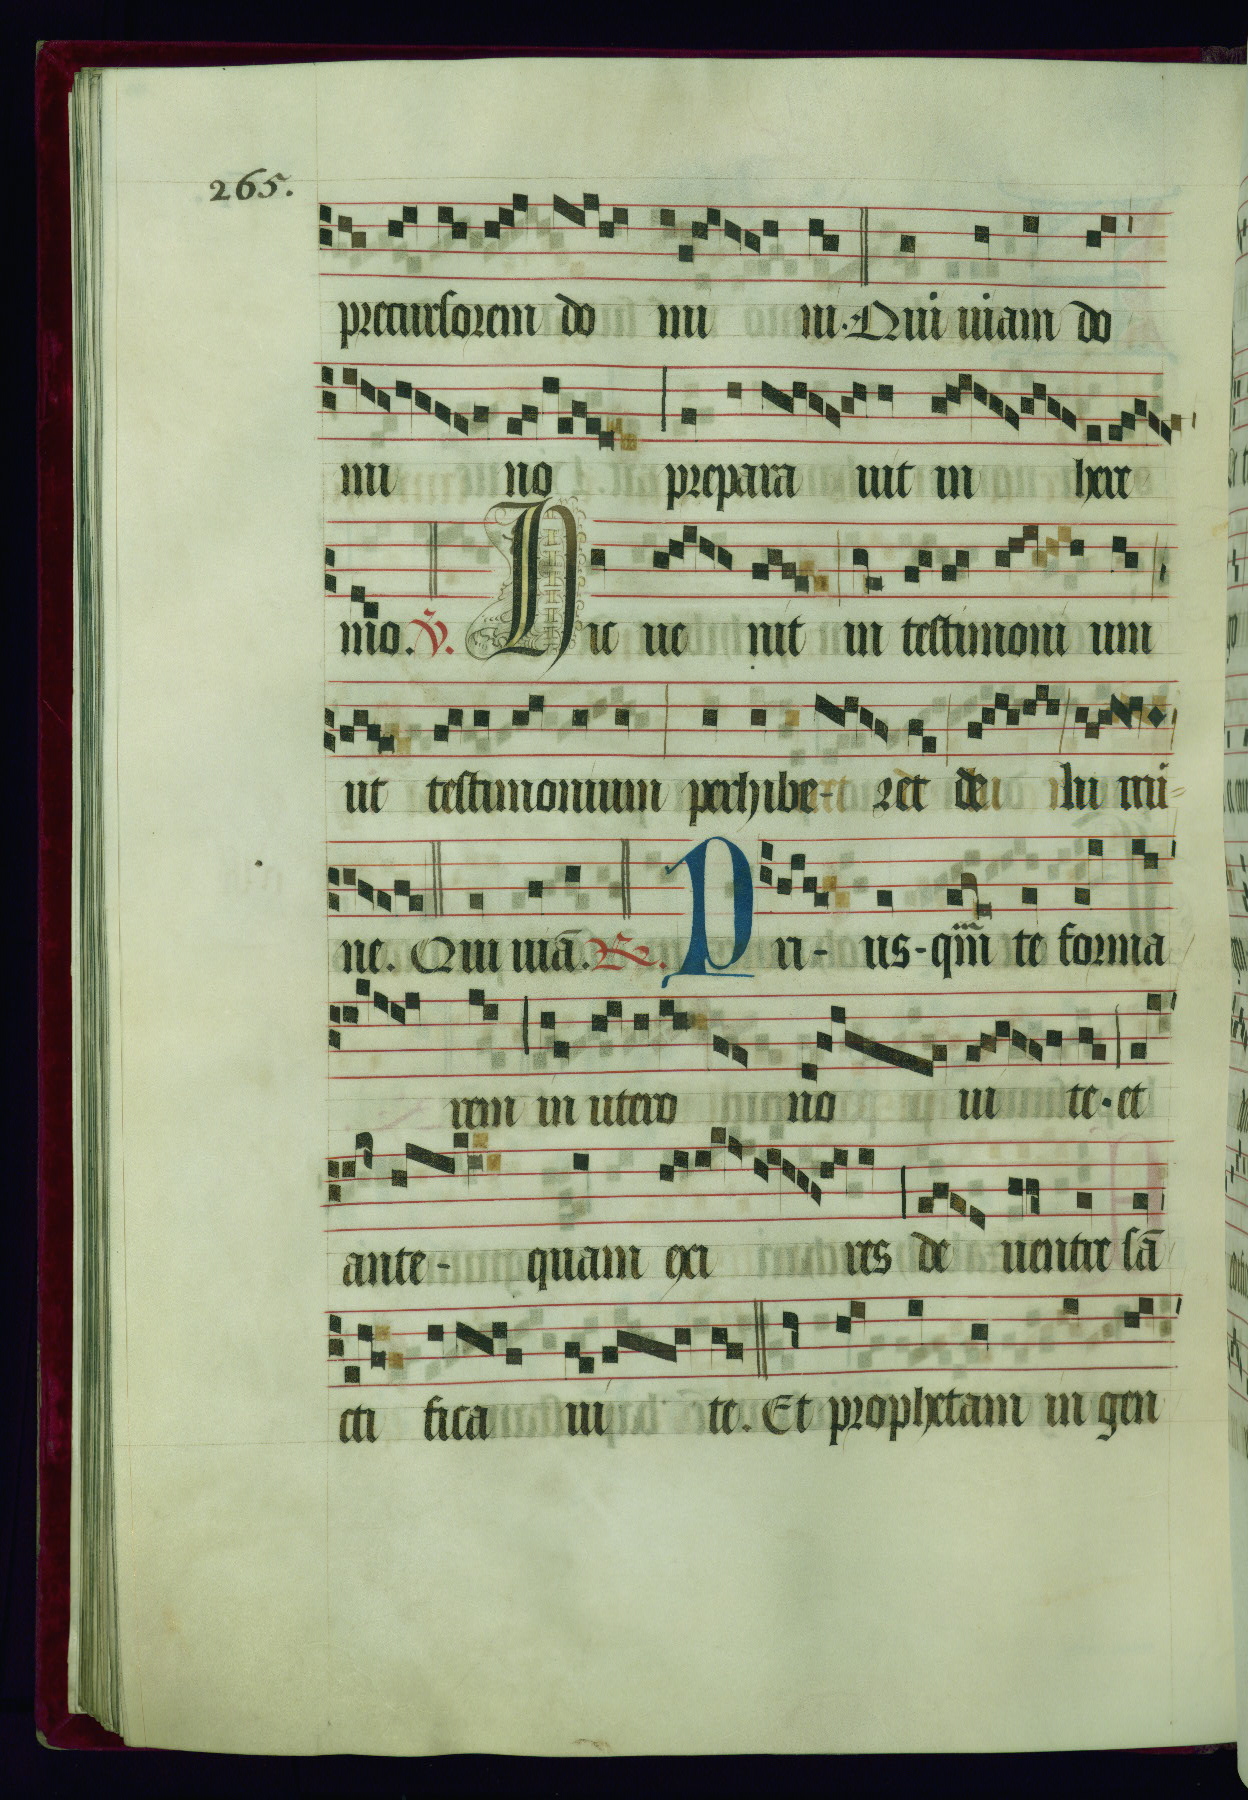 265.
precursorem do mi ni. Qui uiam do
mi no prepara uit in here
mo. V. Hic ue nit in testimoni um
ut testimonium perhibe- ret de lu mi-
ne. Qui uiā. R. Pri- us- qm̄ te forma
rem in utero no ui te. et
ante- quam exi res de uentre sā
cti fica ui te. Et prophetam in gen